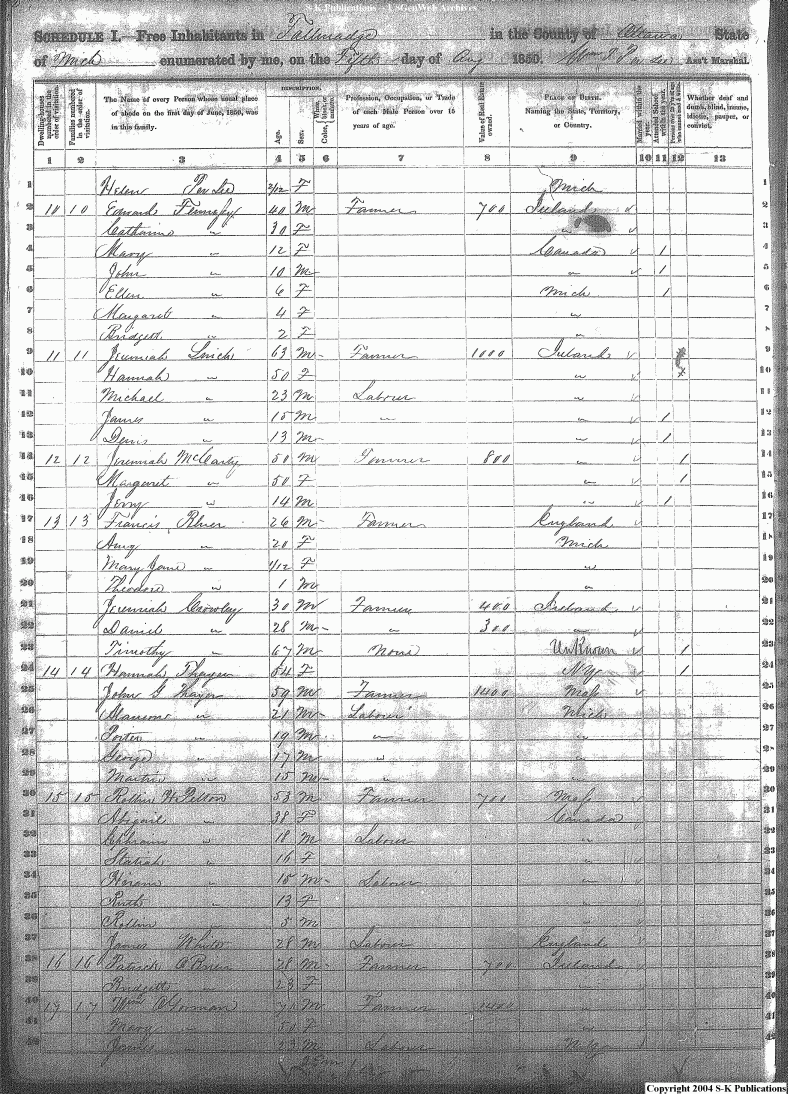 S-K Publications - USGenWeb Archives
SCHEDULE I.—Free Inhabitants in Tallmadge in the County of Ottawa State
of Mich enumerated by me, on the Fifth day of Aug 1850. Ass't Marshal.
Dwelling-houses numbered in the order of visitation.
Families numbered in the order of visitation.
The Name of every Person whose usual place of abode on the first day of June, 1850, was in this family.
DESCRIPTION.
Age.
Sex.
Color, White, black, or mulatto.
Profession, Occupation, or Trade of each Male Person over 15 years of age.
Value of Real Estate owned.
PLACE OF BIRTH. Naming the State, Territory, or Country.
Married within the year.
Attended School within the year.
Whether deaf and dumb, blind, insane, idiotic, pauper, or convict.
1 2 3 4 5 6 7 8 9 10 11 12 13
1 Helen 2/12 F Mich 1
2 10 10 Edward 40 M Farmer 700 Ireland 2
3 Catharine " 30 F " 3
4 Mary " 12 F Canada 1 4
5 John " 10 M " 1 5
6 Ellen " 6 F Mich 1 6
7 Margaret " 4 F " 7
8 Bridgett " 2 F " 8
9 11 11 Jeremiah 63 M Farmer 1000 Ireland 9
10 Hannah " 50 F " 10
11 Michael " 23 M Labourer " 11
12 James " 15 M " " 1 12
13 Denis " 13 M " 1 13
14 12 12 Jeremiah McCarty 50 M Farmer 800 " 1 14
15 Margaret " 50 F " 1 15
16 Jerry " 14 M " 1 16
17 13 13 Francis 26 M Farmer England 17
18 Amy " 20 F Mich 18
19 Mary Jane " 1/12 F " 19
20 Theodore " 1 M " 20
21 Jeremiah Crowley 30 M Farmer 400 Ireland 21
22 Daniel " 28 M " 300 " 22
23 Timothy " 67 M None Unknown 1 23
24 14 14 Hannah Thayer 54 F N Y 1 24
25 John G Thayer 59 M Farmer 1400 Mass 25
26 " 21 M Labourer Mich 26
27 Porter " 19 M " " 27
28 George " 17 M " " 28
29 Martin " 15 M " " 29
30 15 15 Rollin H Pelton 53 M Farmer 700 Mass 30
31 Abigail " 38 F Canada 31
32 Ephraim " 18 M Labourer " 32
33 " 16 F " 33
34 Hiram " 15 M Labourer " 34
35 Ruth " 13 F " 35
36 Rollin " 5 M " 36
37 James White 28 M Labourer England 37
38 16 16 Patrick O'Brien 28 M Farmer 700 Ireland 38
39 Bridgett " 23 F " 39
40 17 17 Wm O'Gorman 70 M Farmer 1400 " 40
41 Mary " 50 F " 41
42 James " 23 M Labourer N Y 42
Copyright 2004 S-K Publications